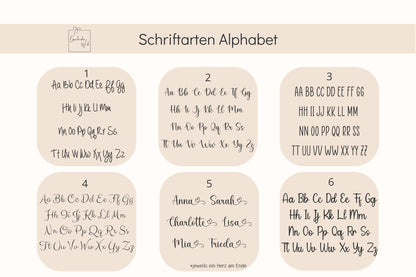 Schriftarten Alphabet
1
Aa Bb Cc Dd Ee Ff Gg
Hh Ii Jj Kk Ll Mm
Nn Oo Pp Qq Rr Ss
Tt Uu Vv Ww Xx Yy Zz
2
Aa Bb Cc Dd Ee Ff Gg
Hh Ii Jj Kk Ll Mm
Nn Oo Pp Qq Rr Ss
Tt Uu Vv Ww Xx Yy Zz
3
AA BB CC DD EE FF GG
HH II JJ KK LL MM
NN OO PP QQ RR SS
TT UU VV WW XX YY ZZ
4
Aa Bb Cc Dd Ee Ff Gg
Hh Ii Jj Kk Ll Mm
Nn Oo Pp Qq Rr Ss
Tt Uu Vv Ww Xx Yy Zz
5
Anna Sarah
Charlotte Lisa
Mia Frieda
*jeweils ein Herz am Ende
6
Aa Bb Cc Dd Ee Ff Gg
Hh Ii Jj Kk Ll Mm
Nn Oo Pp Qq Rr Ss
Tt Uu Vv Ww Xx Yy Zz